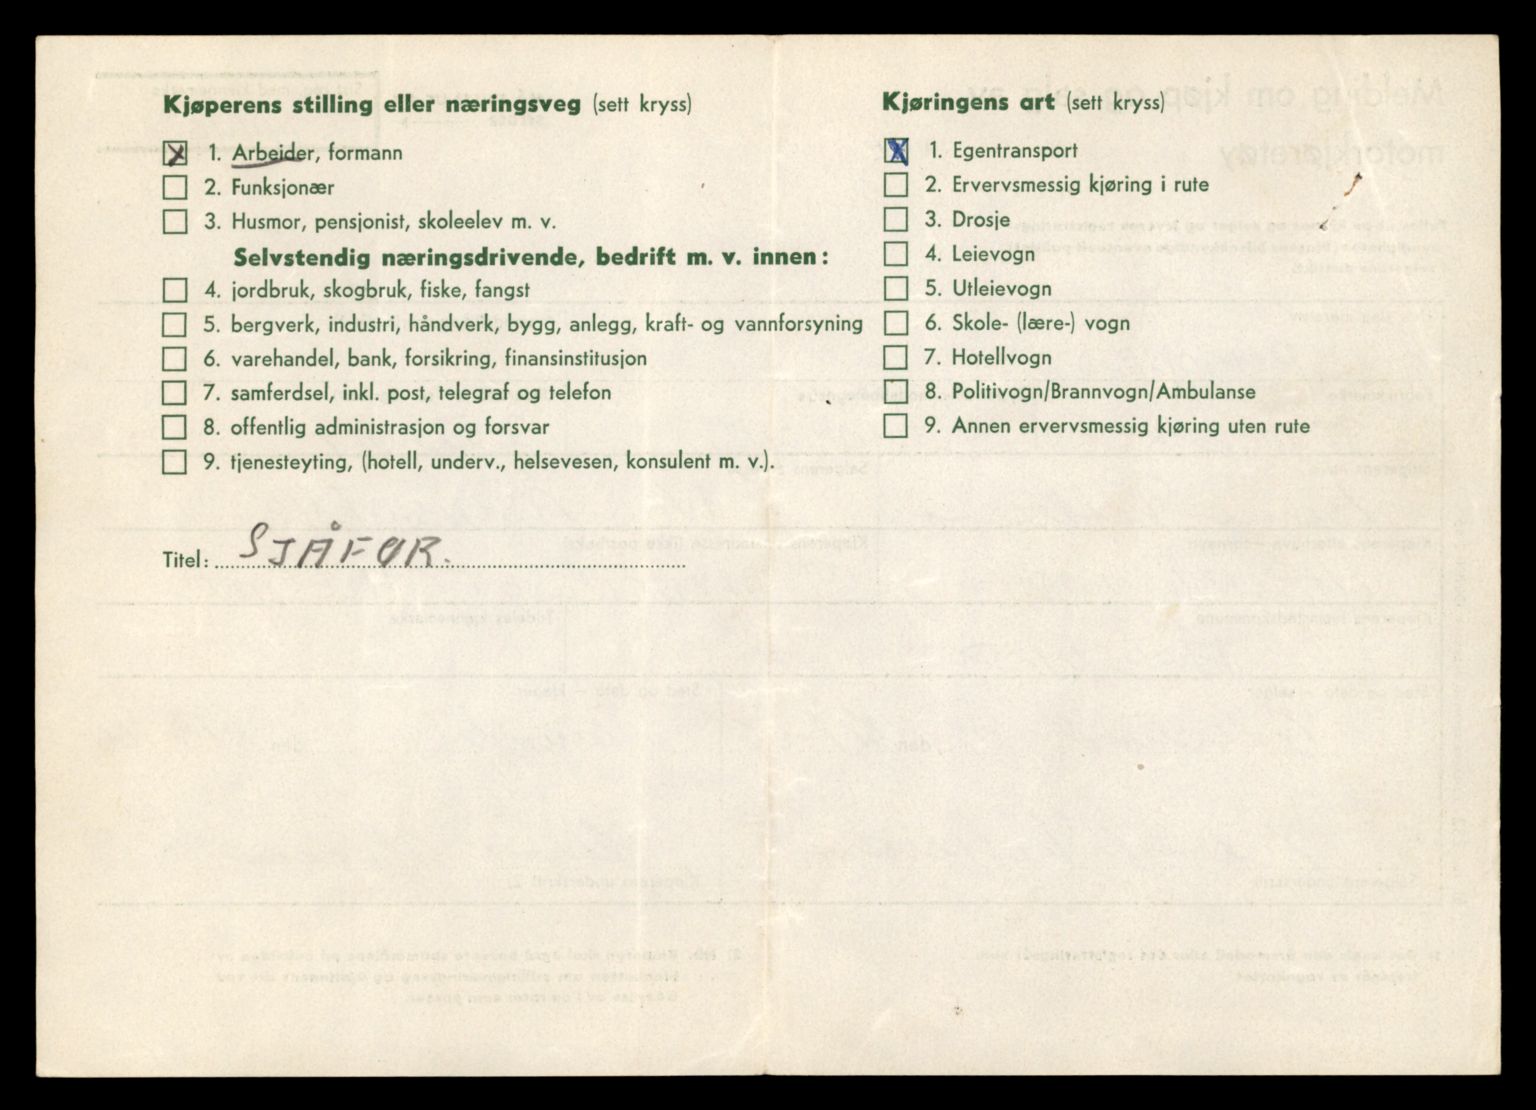 Kjøperens stilling eller næringsveg (sett kryss)
1. Arbeider, formann
2. Funksjonær
3. Husmor, pensjonist, skoleelev m. v.
Selvstendig næringsdrivende, bedrift m. v. innen:
4. jordbruk, skogbruk, fiske, fangst
5. bergverk, industri, håndverk, bygg, anlegg, kraft- og vannforsyning
6. varehandel, bank, forsikring, finansinstitusjon
7. samferdsel, inkl. post, telegraf og telefon
8. offentlig administrasjon og forsvar
9. tjenesteyting, (hotell, underv., helsevesen, konsulent m. v.).
Titel: SJÅFØR.
Kjøringens art (sett kryss)
1. Egentransport
2. Ervervsmessig kjøring i rute
3. Drosje
4. Leievogn
5. Utleievogn
6. Skole- (lære-) vogn
7. Hotellvogn
8. Politivogn/Brannvogn/Ambulanse
9. Annen ervervsmessig kjøring uten rute